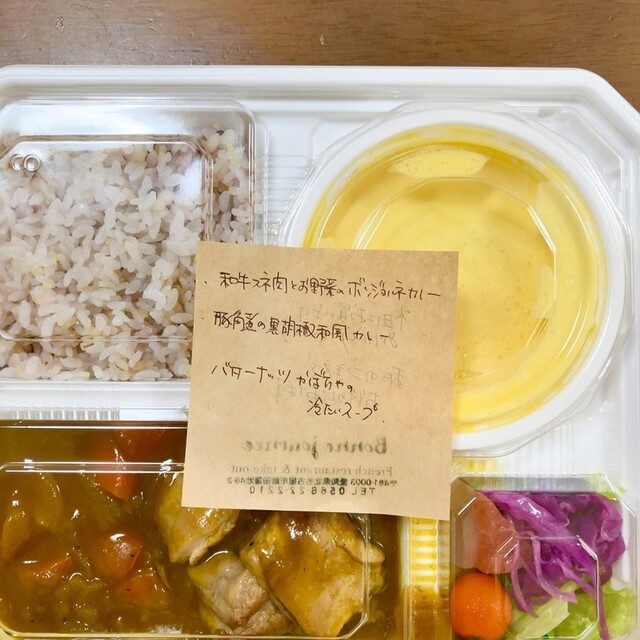 ・和牛スネ肉とお野菜のボンジョルネカレー
・豚角煮の黒胡椒和風カレー
・バターナッツかぼちゃの
冷たいスープ
Bonne journee
French restaurant & take out
〒481-0003
TEL 0568 22 2210